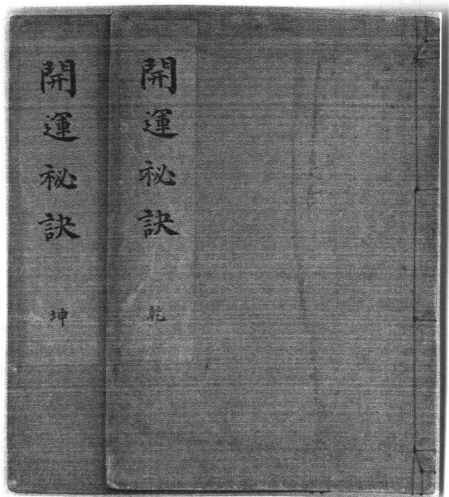 開運秘訣 乾
開運秘訣 坤